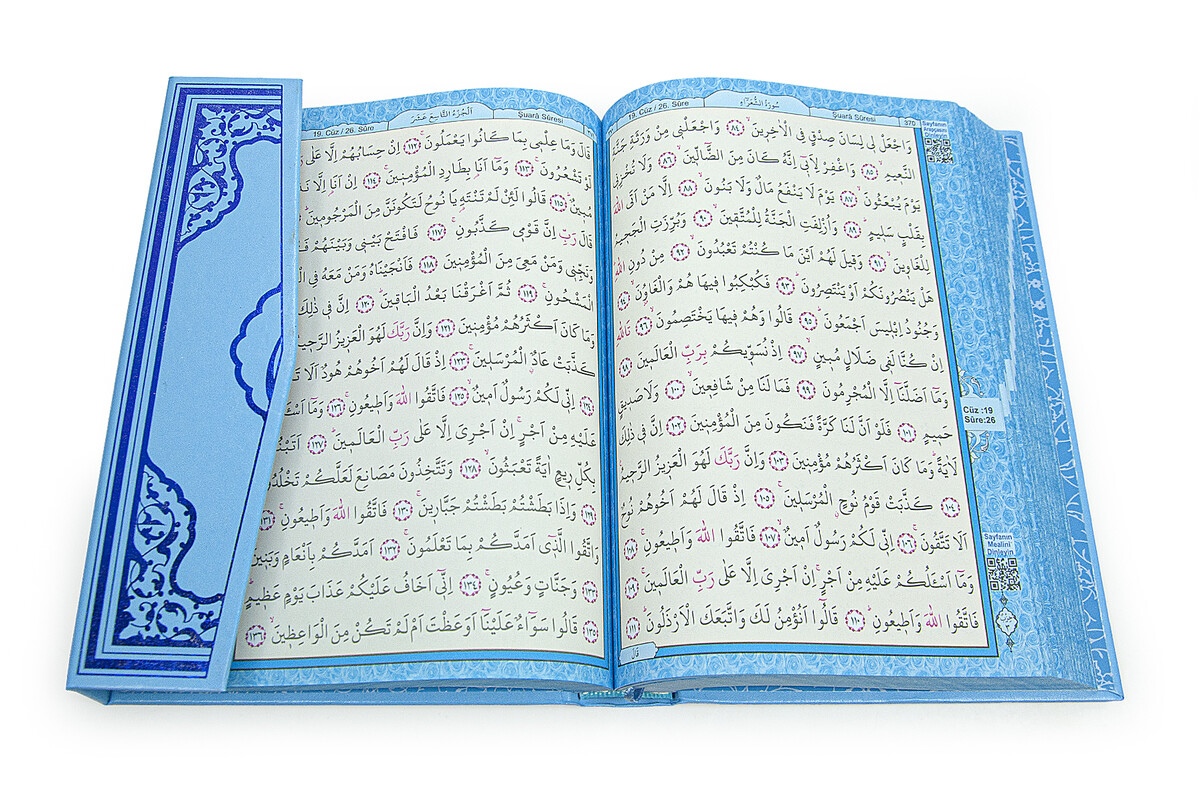 19. Cüz / 26. Sûre
سُورَةُ الشُّعَرَاءِ
Şuarâ Sûresi
370
Sayfanın
Arapçasını
Dinleyin
وَاجْعَلْ لِى لِسَانَ صِدْقٍ فِى الْاٰخِرِينَ ﴿٨٤﴾ وَاجْعَلْنِى مِنْ وَرَثَةِ جَنَّةِ
النَّعِيمِ ﴿٨٥﴾ وَاغْفِرْ لِاَبِٓى اِنَّهُ كَانَ مِنَ الضَّٓالِّينَ ﴿٨٦﴾ وَلَا تُخْزِنِى
يَوْمَ يُبْعَثُونَ ﴿٨٧﴾ يَوْمَ لَا يَنْفَعُ مَالٌ وَلَا بَنُونَ ﴿٨٨﴾ اِلَّا مَنْ اَتَى اللّٰهَ
بِقَلْبٍ سَلِيمٍ ﴿٨٩﴾ وَاُزْلِفَتِ الْجَنَّةُ لِلْمُتَّقِينَ ﴿٩٠﴾ وَبُرِّزَتِ الْجَحِيمُ
لِلْغَاوِينَ ﴿٩١﴾ وَقِيلَ لَهُمْ اَيْنَ مَا كُنْتُمْ تَعْبُدُونَ ﴿٩٢﴾ مِنْ دُونِ اللّٰهِ
هَلْ يَنْصُرُونَكُمْ اَوْ يَنْتَصِرُونَ ﴿٩٣﴾ فَكُبْكِبُوا فِيهَا هُمْ وَالْغَاوُنَ ﴿٩٤﴾
وَجُنُودُ اِبْلِيسَ اَجْمَعُونَ ﴿٩٥﴾ قَالُوا وَهُمْ فِيهَا يَخْتَصِمُونَ ﴿٩٦﴾ تَاللّٰهِ
اِنْ كُنَّا لَفِى ضَلَالٍ مُبِينٍ ﴿٩٧﴾ اِذْ نُسَوِّيكُمْ بِرَبِّ الْعَالَمِينَ ﴿٩٨﴾
وَمَٓا اَضَلَّنَٓا اِلَّا الْمُجْرِمُونَ ﴿٩٩﴾ فَمَا لَنَا مِنْ شَافِعِينَ ﴿١٠٠﴾ وَلَا صَدِيقٍ
حَمِيمٍ ﴿١٠١﴾ فَلَوْ اَنَّ لَنَا كَرَّةً فَنَكُونَ مِنَ الْمُؤْمِنِينَ ﴿١٠٢﴾ اِنَّ فِى ذٰلِكَ
لَاٰيَةً وَمَا كَانَ اَكْثَرُهُمْ مُؤْمِنِينَ ﴿١٠٣﴾ وَاِنَّ رَبَّكَ لَهُوَ الْعَزِيزُ الرَّحِيمُ
﴿١٠٤﴾ كَذَّبَتْ قَوْمُ نُوحٍ الْمُرْسَلِينَ ﴿١٠٥﴾ اِذْ قَالَ لَهُمْ اَخُوهُمْ نُوحٌ
اَلَا تَتَّقُونَ ﴿١٠٦﴾ اِنِّى لَكُمْ رَسُولٌ اَمِينٌ ﴿١٠٧﴾ فَاتَّقُوا اللّٰهَ وَاَطِيعُونِ ﴿١٠٨﴾
وَمَٓا اَسْـَٔلُكُمْ عَلَيْهِ مِنْ اَجْرٍ اِنْ اَجْرِىَ اِلَّا عَلٰى رَبِّ الْعَالَمِينَ ﴿١٠٩﴾
فَاتَّقُوا اللّٰهَ وَاَطِيعُونِ ﴿١١٠﴾ قَالُٓوا اَنُؤْمِنُ لَكَ وَاتَّبَعَكَ الْاَرْذَلُونَ ﴿١١١﴾
قَالَ
Cüz :19
Sûre:26
Sayfanın
Mealini
Dinleyin
19. Cüz / 26. Sûre
اَلْجُزْءُ التَّاسِعَ عَشَرَ
Şuarâ Sûresi
قَالَ وَمَا عِلْمِى بِمَا كَانُوا يَعْمَلُونَ ﴿١١٢﴾ اِنْ حِسَابُهُمْ اِلَّا عَلٰى
لَوْ تَشْعُرُونَ ﴿١١٣﴾ وَمَٓا اَنَا۬ بِطَارِدِ الْمُؤْمِنِينَ ﴿١١٤﴾ اِنْ اَنَا۬ اِلَّا
مُبِينٌ ﴿١١٥﴾ قَالُوا لَئِنْ لَمْ تَنْتَهِ يَا نُوحُ لَتَكُونَنَّ مِنَ الْمَرْجُومِينَ
قَالَ رَبِّ اِنَّ قَوْمِى كَذَّبُونِ ﴿١١٧﴾ فَافْتَحْ بَيْنِى وَبَيْنَهُمْ
وَنَجِّنِى وَمَنْ مَعِىَ مِنَ الْمُؤْمِنِينَ ﴿١١٨﴾ فَاَنْجَيْنَاهُ وَمَنْ مَعَهُ فِى
الْمَشْحُونِ ﴿١١٩﴾ ثُمَّ اَغْرَقْنَا بَعْدُ الْبَاقِينَ ﴿١٢٠﴾ اِنَّ فِى ذٰلِكَ
وَمَا كَانَ اَكْثَرُهُمْ مُؤْمِنِينَ ﴿١٢١﴾ وَاِنَّ رَبَّكَ لَهُوَ الْعَزِيزُ الرَّحِيمُ
كَذَّبَتْ عَادٌ الْمُرْسَلِينَ ﴿١٢٣﴾ اِذْ قَالَ لَهُمْ اَخُوهُمْ هُودٌ اَلَا
﴿١٢٤﴾ اِنِّى لَكُمْ رَسُولٌ اَمِينٌ ﴿١٢٥﴾ فَاتَّقُوا اللّٰهَ وَاَطِيعُونِ ﴿١٢٦﴾ وَمَٓا
عَلَيْهِ مِنْ اَجْرٍ اِنْ اَجْرِىَ اِلَّا عَلٰى رَبِّ الْعَالَمِينَ ﴿١٢٧﴾
بِكُلِّ رِيعٍ اٰيَةً تَعْبَثُونَ ﴿١٢٨﴾ وَتَتَّخِذُونَ مَصَانِعَ لَعَلَّكُمْ تَخْلُدُونَ
﴿١٢٩﴾ وَاِذَا بَطَشْتُمْ بَطَشْتُمْ جَبَّارِينَ ﴿١٣٠﴾ فَاتَّقُوا اللّٰهَ وَاَطِيعُونِ ﴿١٣١﴾
وَاتَّقُوا الَّذِٓى اَمَدَّكُمْ بِمَا تَعْلَمُونَ ﴿١٣٢﴾ اَمَدَّكُمْ بِاَنْعَامٍ وَبَنِينَ
﴿١٣٣﴾ وَجَنَّاتٍ وَعُيُونٍ ﴿١٣٤﴾ اِنِّٓى اَخَافُ عَلَيْكُمْ عَذَابَ يَوْمٍ عَظِيمٍ
﴿١٣٥﴾ قَالُوا سَوَٓاءٌ عَلَيْنَٓا اَوَعَظْتَ اَمْ لَمْ تَكُنْ مِنَ الْوَاعِظِينَ ﴿١٣٦﴾